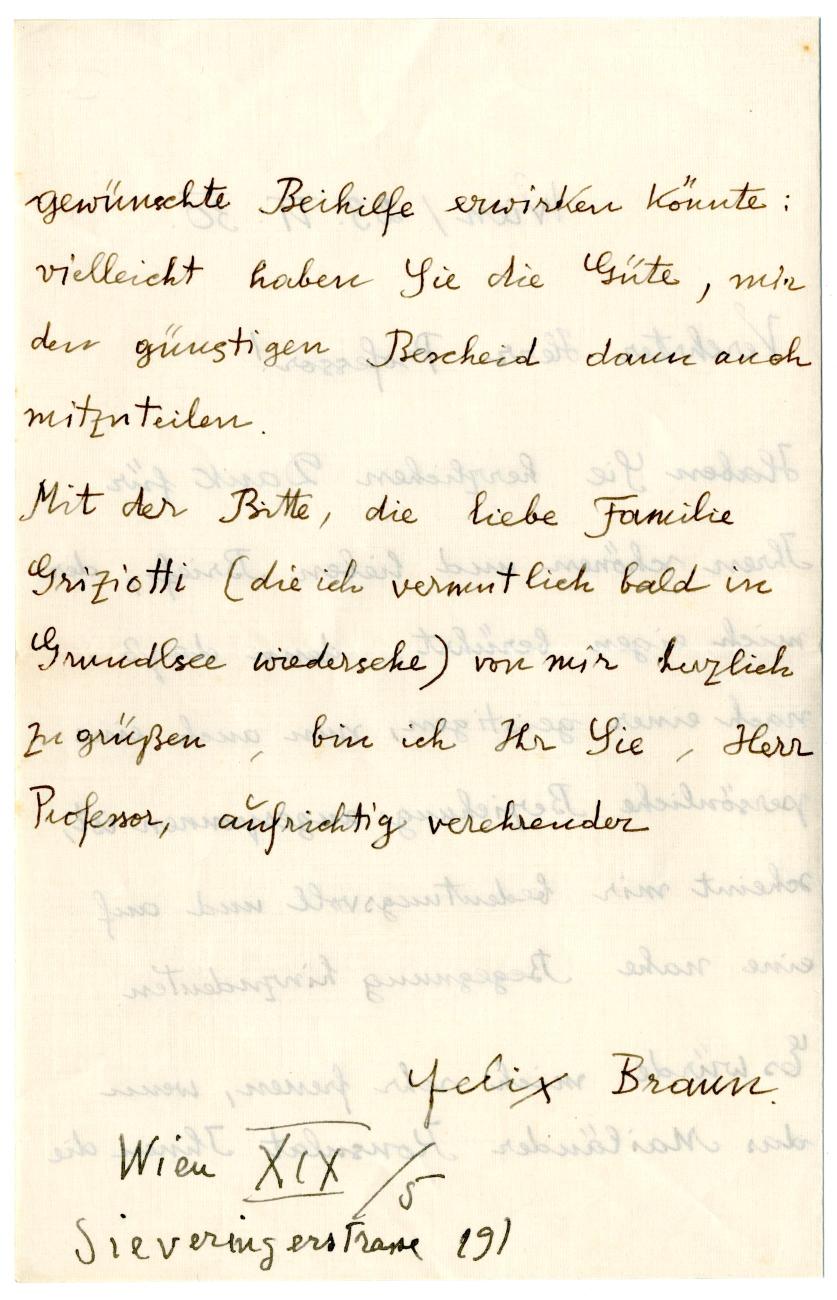 gewünschte Beihilfe erwirken könnte:
vielleicht haben Sie die Güte, mir
den günstigen Bescheid dann auch
mitzuteilen.
Mit der Bitte, die liebe Familie
Griziotti (die ich vermutlich bald in
Grundlsee wiedersehe) von mir herzlich
zu grüßen, bin ich Ihr Sie, Herr
Professor, aufrichtig verehrender
Felix Braun.
Wien XIX/5
Sieveringerstrasse 191